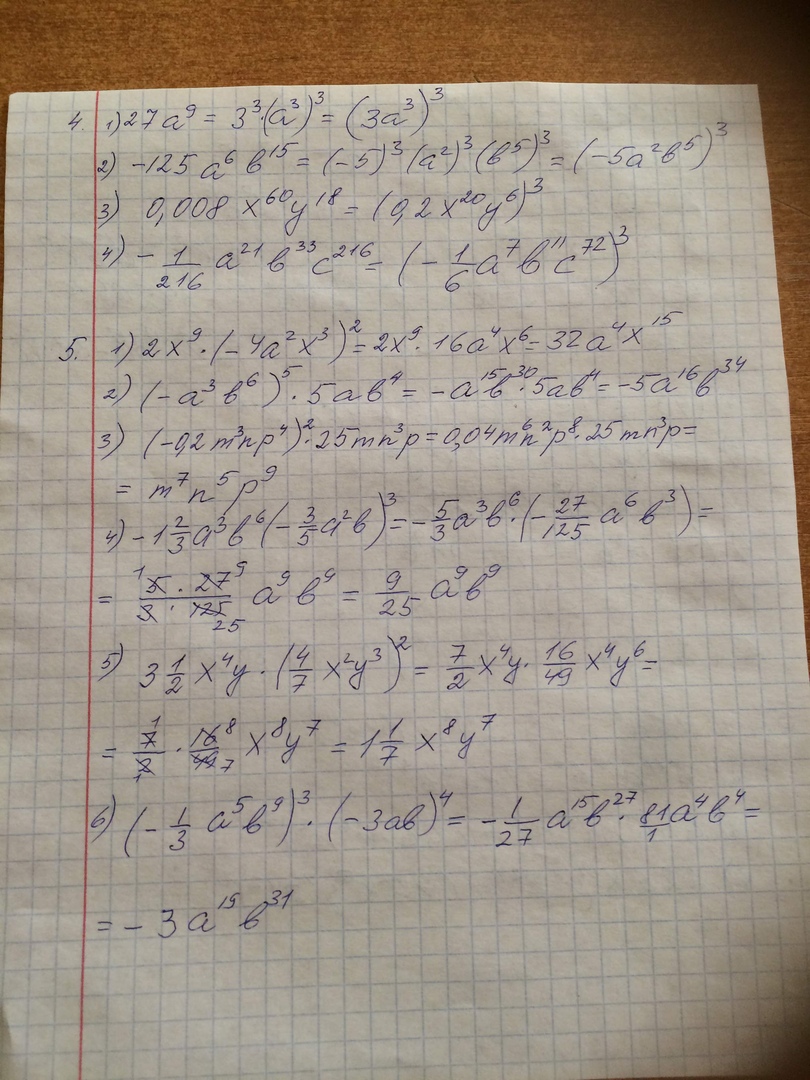 4. 1) 27a⁹ = 3³·(a³)³ = (3a³)³
2) -125a⁶b¹⁵ = (-5)³(a²)³(b⁵)³ = (-5a²b⁵)³
3) 0,008 x⁶⁰y¹⁸ = (0,2x²⁰y⁶)³
4) -1/216 a²¹b³³c²¹⁶ = (-1/6 a⁷b¹¹c⁷²)³
5. 1) 2x⁹·(-4a²x³)² = 2x⁹·16a⁴x⁶ = 32a⁴x¹⁵
2) (-a³b⁶)⁵·5ab⁴ = -a¹⁵b³⁰·5ab⁴ = -5a¹⁶b³⁴
3) (-0,2m³np⁴)²·25mn³p = 0,04m⁶n²p⁸·25mn³p =
= m⁷n⁵p⁹
4) -1 2/3 a³b⁶(-3/5 a²b)³ = -5/3 a³b⁶·(-27/125 a⁶b³) =
= 5·27/3·125 a⁹b⁹ = 9/25 a⁹b⁹
5) 3 1/2 x⁴y·(4/7 x²y³)² = 7/2 x⁴y·16/49 x⁴y⁶ =
= 7/2·16/49 x⁸y⁷ = 1 1/7 x⁸y⁷
6) (-1/3 a⁵b⁹)³·(-3ab)⁴ = -1/27 a¹⁵b²⁷·81/1 a⁴b⁴ =
= -3a¹⁹b³¹